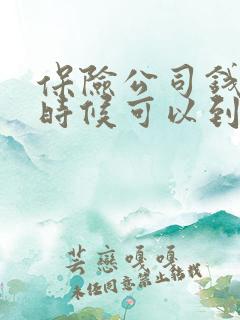 保險公司錢
時候可以到
芸戀嘎嘎
未经同意禁止转载